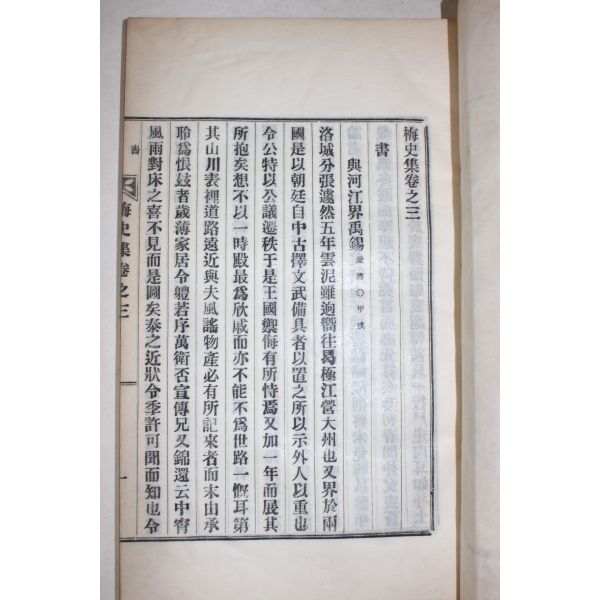 梅史集卷之三
書
與河江界禹錫 榮潞○甲戌
洛城分張遽然五年雲泥雖逈嚮往曷極江營大州也又界於兩
國是以朝廷自中古擇文武備具者以置之所以示外人以重也
令公特以公議遷秩于是王國禦侮有所恃焉又加一年而展其
所抱矣想不以一時殿最爲欣戚而亦不能不爲世路一慨耳第
其山川表裡道路遠近與夫風謠物產必有所記來者而末由承
聆爲恨玆者歲薄家居令軆若序萬衛否宣傳兄又錦還云中宵
風雨對床之喜不見而是圖矣泰之近狀令季許可聞而知也令
書
梅史集卷之三
一